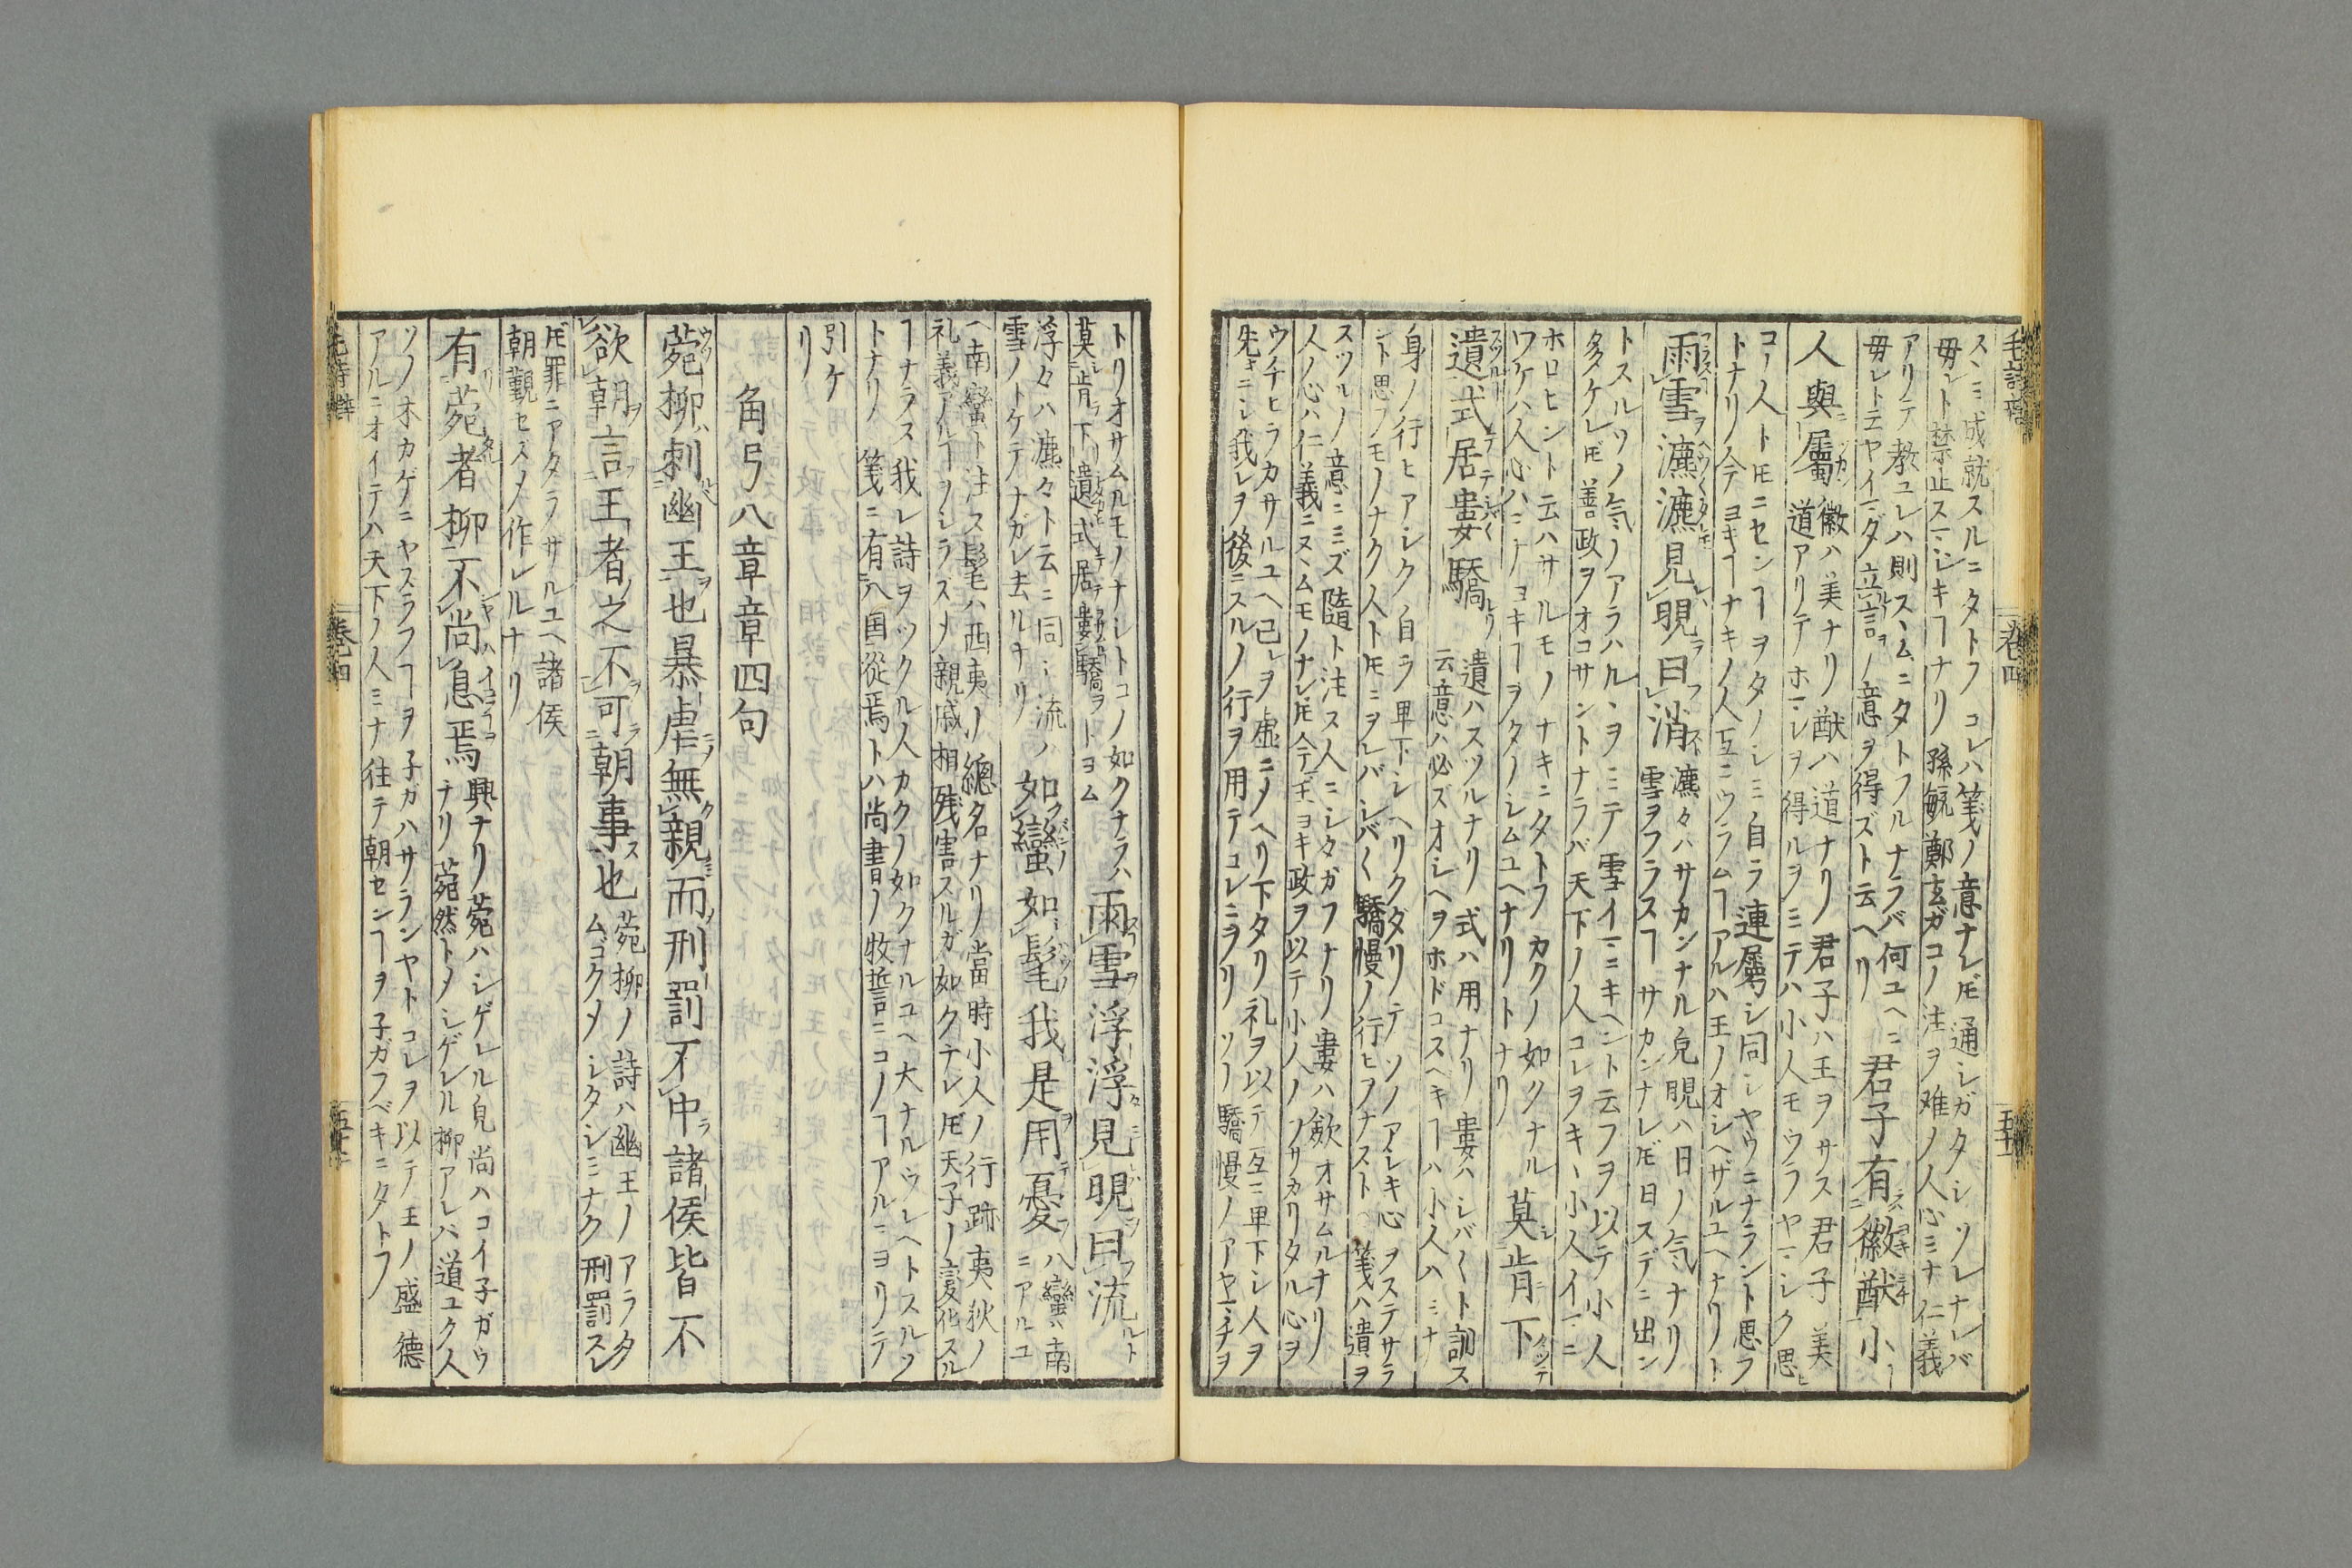 スヽミ成就スルニタトフ コレハ箋ノ意ナレ𪜈通シガタシソレナレバ
毋レト禁止スマジキヿナリ 孫毓鄭玄ガコノ注ヲ难ノ人心ミナ仁義
アリテ教ユレハ則スヽムニタトフルナラバ何ユヘニ
毋レト云ヤイマダ立言ノ意ヲ得ズト云ヘリ
君子有徽猷小
人與屬
徽ハ美ナリ猷ハ道ナリノ君子ハ王ヲサス君子美
道アリテホマレヲ得ルヲミテハ小人モウラヤマシク思ヒ
コノ人ト𪜈ニセンヿヲタノシミ自ラ連屬シ同シヤウニナラント思フ
トナリノ今ヨキヿナキノ人互ニウラムヿアルハ王ノオシヘザルユヘナリノト
雨雪瀌瀌見晛曰消
瀌々ハサカンナル皃晛ハ日ノ気ナリ
雪ヲフラスヿサカンナレ𪜈日スデニ出ン
トスルソノ気ノアラハルヽヲミテ雪イマニキヘント云フヲ以テ小人
多クケレ𪜈善政ヲオコサントナラバ天下ノ人コレヲキヽ小人イマニ
ホロヒント云ハサルモノナキニタトフカクノ如クナル
ワケハ人心ハミナヨキヿヲタノシムユヘナリトナリ
莫肯下
遺式居婁驕
遺ハスツルナリ式ハ用ナリ婁ハシバ〱ト訓ス
云意ハ必ズオシヘヲホドコスヘキヿハ小人ハミナ
身ノ行ヒアシク自ラ卑下シヘリクダリテソノアシキ心ヲステサラ
ント思フモノナク人ト𪜈ニヲレバシバ〱驕慢ノ行ヒヲナスト 箋ハ遺ヲ
スツルノ意ニミズ隨ト注ス人ニシタガフナリ婁ハ斂オサムルナリ
人ノ心ハ仁義ニスヽムモノナレ𪜈今王ヨキ政ヲ以テ小人ノフサカリタル心ヲ
ウチヒラカサルユヘ己レヲ虚ニノヘリ下タリ礼ヲ以テ互ニ卑下シ人ヲ
先キニシ我レヲ後ニスルノ行ヲ用テコレニヲリソノ驕慢ノアヤマチヲ
トリオサムルモノナシトコノ如クナラハ
莫肯下遺式居婁驕ヲトヨム
雨雪浮浮見晛曰流
浮々ハ瀌々ト云ニ同シ流ハ
雪ノトケテナガレ去ルナリ
如蠻如髦我是用憂
八蠻ハ南
ニアルユ
ヘ南蠻ト注ス髦ハ西夷ノ總名ナリノ當時小人ノ行跡夷狄ノ
礼義アルヿヲシラズメ親戚相残害スルガ如クナレ𪜈天子ノ変化スル
ヿナラス我レ詩ヲツクル人カクノ如クナルユヘ大ナルウレヘトスルソ
トナリノ 箋ニ有八国従焉トハ尚書ノ牧誓ニコノヿアルニヨリテ
引ケ
リ
角弓八章章四句
菀柳刺幽王也暴虐無親而刑罰不中諸侯皆不
欲朝言王者之不可朝事也
菀柳ノ詩ハ幽王ノアラタ
ムゴクメシタシミナク刑罰スレ
𪜈罪ニアタラザルユヘ諸侯
朝覲セスメ作レルナリ
有菀者柳不尚息焉
興ナリノ菀ハシゲレル皃尚ハコイ子ガウ
ナリ菀然トメシゲレル柳アレバ道ユク人
ソノ木カゲニヤスラフヿヲ子ガハサランヤトコレヲ以テ王ノ盛德
アルニオイテハ天下ノ人ミナ往テ朝センヿヲ子ガフベキニタトフノ